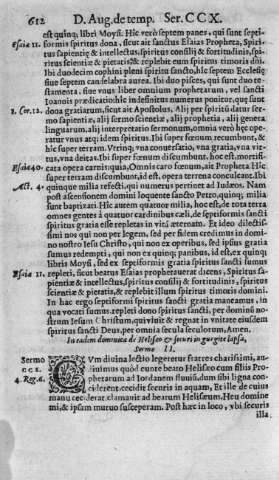 612 D. Aug. de temp. Ser. CCX.
est quinq; libri Moysi. Hîc verò septem panes, qui sunt septi-
Esaiæ 11. formis spiritus dona, sicut ait sanctus Esaias Propheta, Spiri-
tus sapientiæ & intellectus, spiritus consilij & fortitudinis, spiri-
tus scientiæ & pietatis: & replebit eum spiritus timoris dñi.
Ibi duodecim cophini pleni spiritu sancto, hîc septem Ecclesiæ
sine septem candelabra aurea. Ibi duo pisces, qui sunt duo te-
stamenta, siue vnus liber omnium prophetarum, vel sancti
Ioannis prædicationis indefinitus numerus ponitur, quę sunt
1. Cor. 12. dona gratiarum, sicut ait Apostolus. Alij per spiritũ datur ser-
mo sapientiæ, alij sermo scientiæ, alij prophetia, alij genera
linguarum, alij interpretatio sermonum, omnia verò hęc ope-
ratur vnus atq; idem spiritus. Ibi super fœnum recumbunt, &
hîc super terram. Vtrinq; vna conuersatio, vna gratia, vna vir-
tus, vna deitas. Ibi super fœnum discumbunt, hoc est, mortifi-
Esaiæ 40. cata opera carnis: quia, Omnis caro fœnum, ait Propheta. Hîc
super terram discumbunt, id est, opera terrena conculcant. Ibi
Act. 4. quinque milia refecti, qui numerus pertinet ad Iudæos. Nam
post ascensionem domini loquente sancto Petro, quinq; milia
sunt baptizati. Hîc autem quatuor milia, hoc est, de tota terra
omnes gentes à quatuor cardinibus cæli, de septiformis sancti
spiritus gratia esse repletas in vitã æternam. Et ideo dilectis-
simi nos qui non per legem, sed per fidem credimus in domi-
no nostro Iesu Christo, qui non ex operibus, sed ipsius gratia
sumus redempti, qui non ex quinq; panibus, id est, ex quinq;
libris Moysi, sed ex septiformis gratia spiritus sancti sumus
Esaiæ 11. repleti, sicut beatus Esaias prophetauerat dicens, Spiritus sa-
pientiæ & intellectus, spiritus consilij & fortitudinis, spiritus
scientiæ & pietatis, & replebit illum spiritus timoris domini.
In hac ergo septiformis spiritus sancti gratia maneamus, in
qua vocati sumus, repleti dono spiritus sancti, per dominũ no-
strum Iesum Christum, qui viuit & regnat in vnitate eiusdem
spiritus sancti Deus, per omnia secula seculorum, Amen.
In eadem dominica de Helisæo & securi in gurgite lapsa,
Sermo II.
Sermo CVm diuina lectio legeretur fratres charissimi, au-
CCX. diuimus quòd eunte beato Helisæo cum filijs Pro-
4. Reg. 6. phetarum ad Iordanem fluuiũ, dum sibi ligna con-
ciderent, cecidit securis in aquam, Et ille de cuius
manu ceciderat clamauit ad beatum Helisæum, Heu domine
mi, & ipsum mutuò susceperam. Post hæc in loco, vbi securis
illa